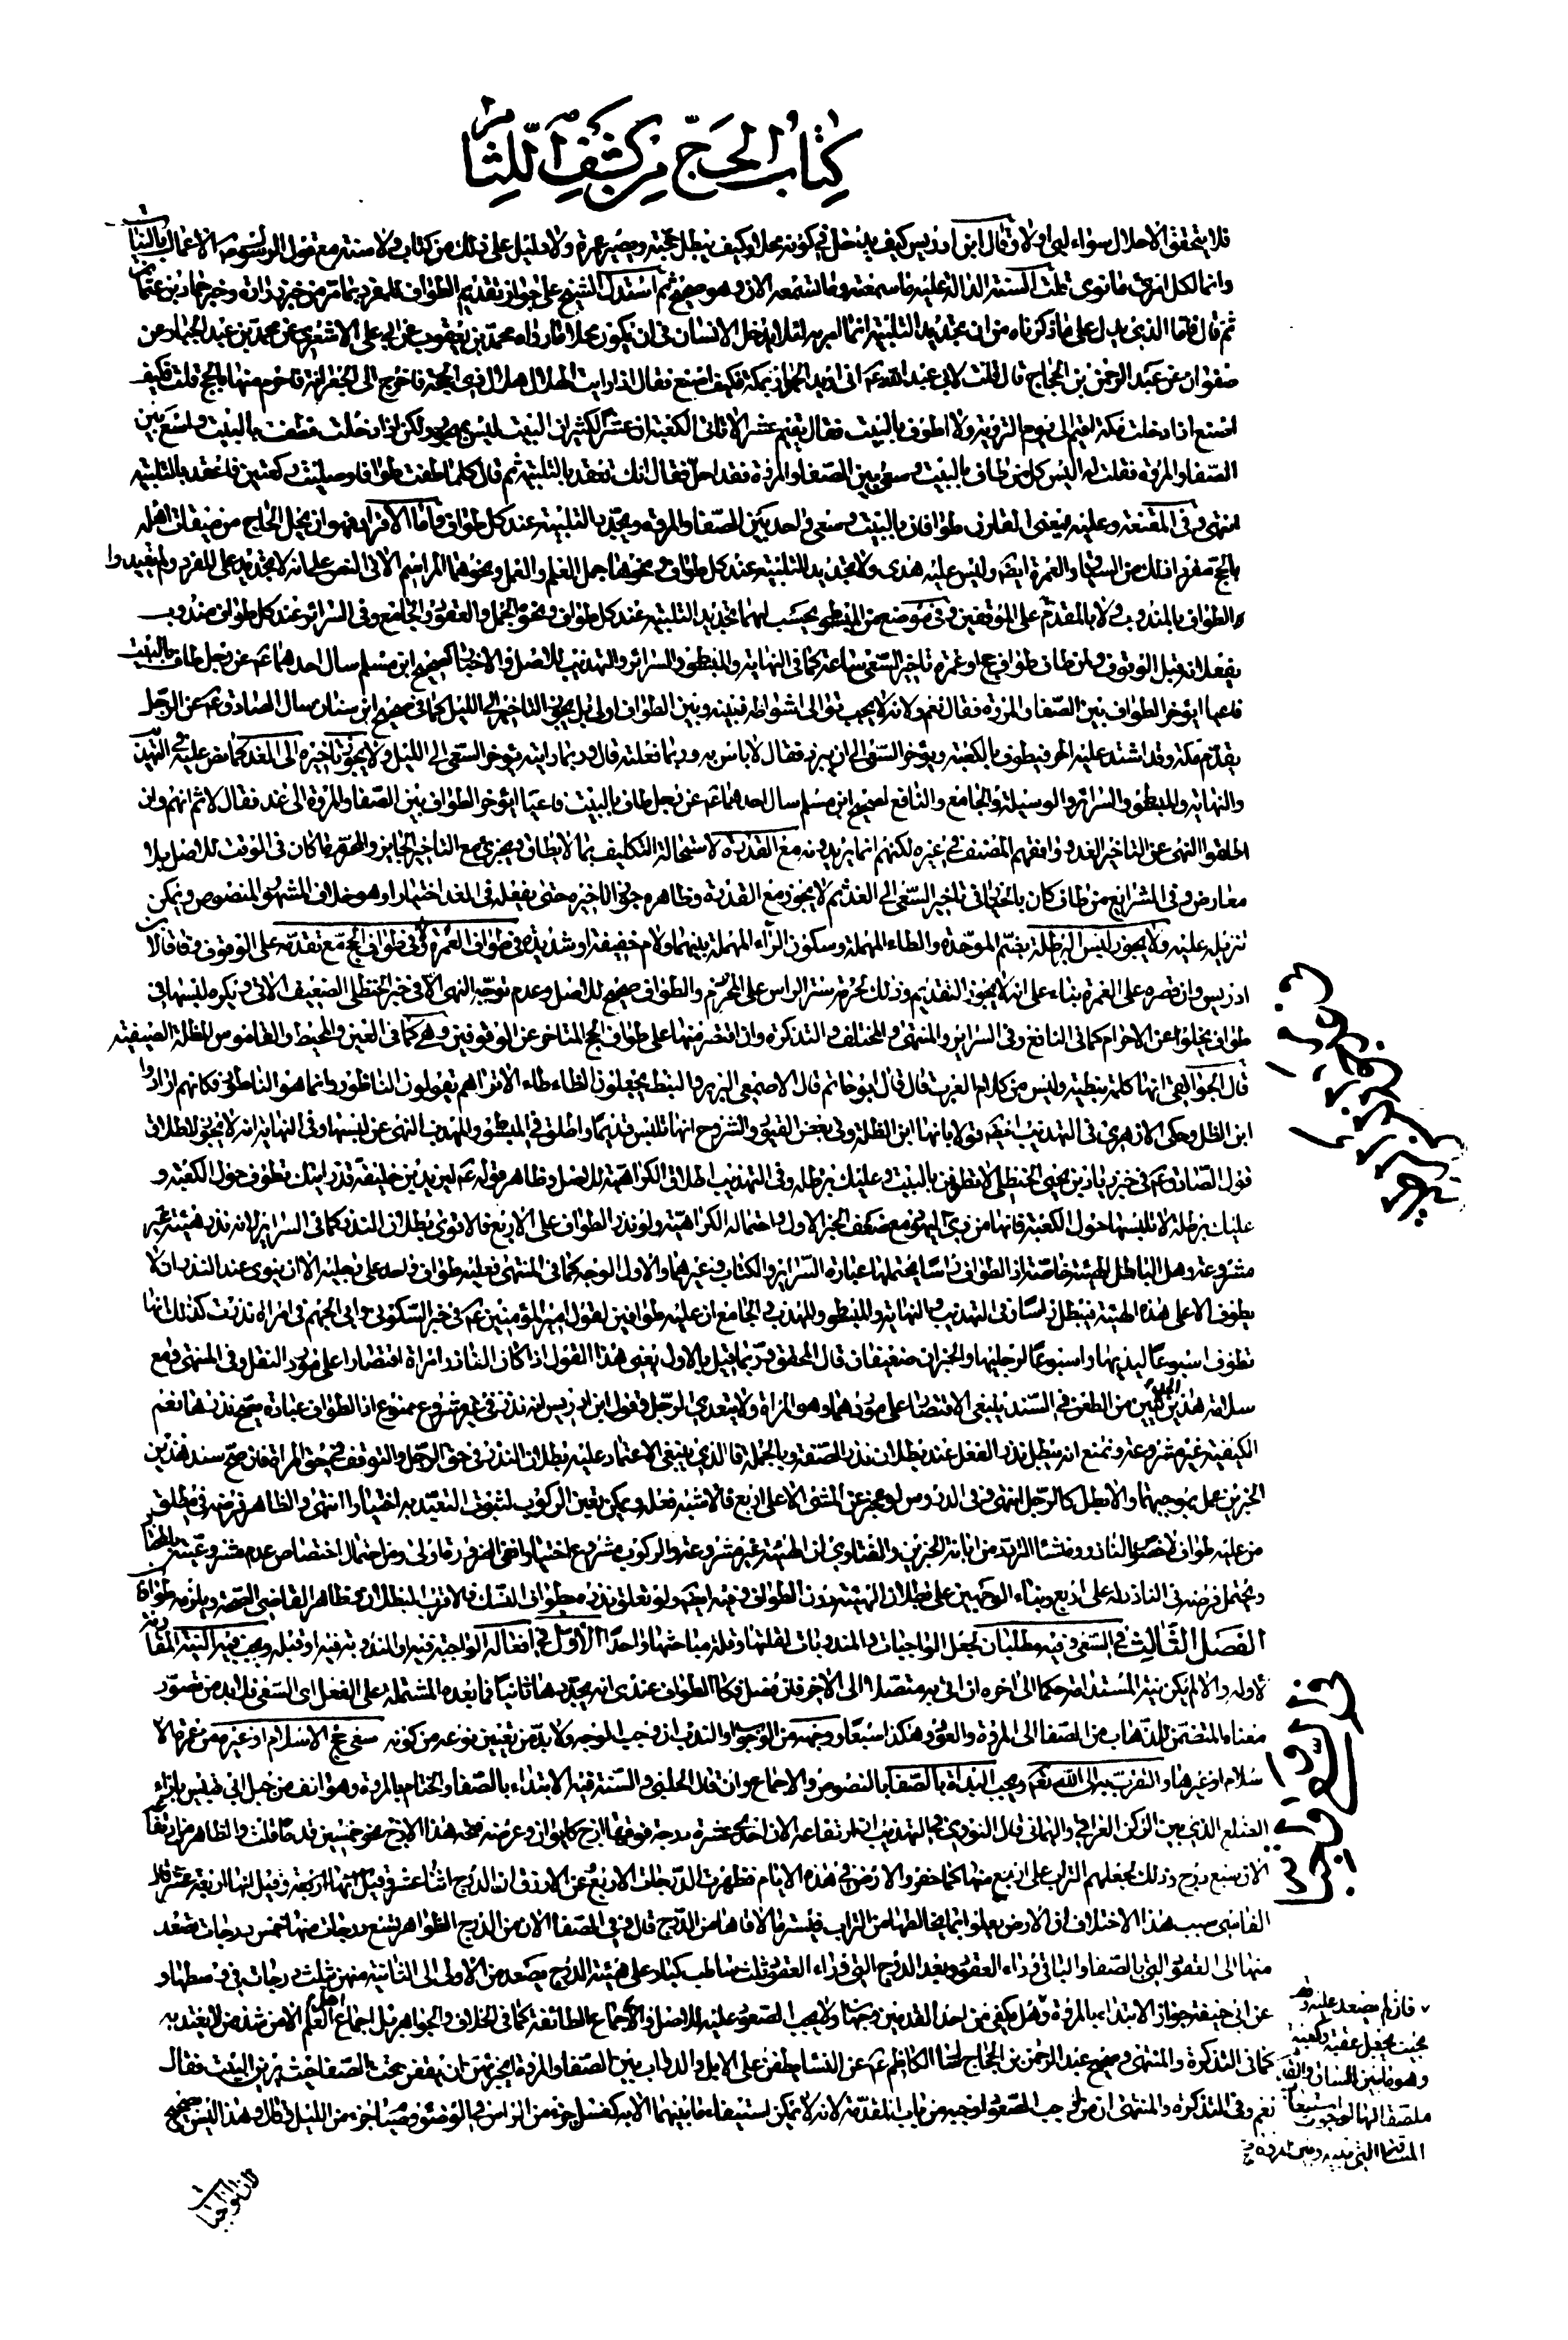 كتاب الحج من كشف اللثام
فلا يتحقق الاحلال سواء لبى او لا وقال ابن ادريس كيف يدخل في كونه محلا وكيف يبطل حجته ويصير عمرة ولا دليل على ذلك من كتاب ولا سنة مع قول الرسول ص الاعمال بالنيات
وانما لكل امرئ ما نوى قلت السنة الدالة عليه ما سمعته وما لتسمعه الان وهو صحيح ثم استدل الشيخ على جواز تقديم الطواف للمفرد بما مر من خبر زرارة وخبر حماد بن عثمان
ثم قال فاما الذي يدل على ما ذكرناه من ان تجديد التلبية انما امر به لئلا يدخل الانسان في ان يكون محلا ما رواه محمد بن يعقوب عن ابي علي الاشعري عن محمد بن عبد الجبار عن
صفوان عن عبد الرحمن بن الحجاج قال قلت لابي عبد الله ع اني اريد الجوار بمكة فكيف اصنع فقال اذا رايت الهلال هلال ذي الحجة فاخرج الى الجعرانة فاحرم منها بالحج قلت فكيف
اصنع اذا دخلت مكة اقيم الى يوم التروية ولا اطوف بالبيت فقال تقيم عشرا لا تاتي الكعبة ان عشرا لكثير ان البيت ليس بمهجور ولكن اذا دخلت فطف بالبيت واسع بين
الصفا والمروة فقلت له اليس كل من طاف بالبيت وسعى بين الصفا والمروة فقد احل فقال انك تعقد بالتلبية ثم قال كلما طفت طوافا وصليت ركعتين فاعقد بالتلبية
انتهى وفي المقنعة وعليه يعني القارن طوافان بالبيت وسعي واحد بين الصفا والمروة ويجدد التلبية عند كل طواف واما الافراد فهو ان يهل الحاج من ميقات اهله
بالحج مفردا ذلك من السياق والعمرة ايضا وليس عليه هدى ولا تجديد التلبية عند كل طواف ونحوهما جمل العلم والعمل ونحوهما المراسم الا في النص على انه لا تجديد على المفرد ولم يقيدوا
الطواف بالمندوب ولا بالمقدم على الموقفين وفي موضع من المبسوط يستحب لهما تجديد التلبية عند كل طواف ونحوه الجمل والعقود والجامع وفي السرائر عند كل طواف مندوب
يفعلانه قبل الوقوف ولمن طاف طواف حج او عمرة تاخير السعي ساعة كما في النهاية والمبسوط والسرائر والتهذيب للاصل والاخبار كصحيح ابن مسلم سال احدهما ع عن رجل طاف بالبيت
فاعيا ايؤخر الطواف بين الصفا والمروة فقال نعم ولانه لا يجب توالي اشواطه فبينه وبين الطواف اولى بل يجوز التاخير الى الليل كما في صحيح ابن سنان سال الصادق ع عن الرجل
يقدم مكة وقد اشتد عليه الحر فيطوف بالكعبة ويؤخر السعي الى ان يبرد فقال لا باس به وربما فعلته قال وربما رايته يؤخر السعي الى الليل ولا يجوز تاخيره الى الغد كما نص عليه في التهذيب
والنهاية والمبسوط والسرائر والوسيلة والجامع والنافع لصحيح ابن مسلم سال احدهما ع عن رجل طاف بالبيت فاعيا ايؤخر الطواف بين الصفا والمروة الى غد فقال لا ثم انهم وان
اطلقوا النهي عن التاخير الغد ووافقهم المصنف في غيره لكنهم انما يريدونه مع القدرة لاستحالة التكليف بما لا يطاق ويجزي مع التاخير الجايز والمحرم ما كان في الوقت للاصل بلا
معارض وفي الشرايع من طاف كان بالخيار في تاخير السعي الى الغد ثم لا يجوز مع القدرة وظاهره جواز تاخيره حتى يفعله في الغد اختيارا وهو خلاف المشهور المنصوص ويمكن
تنزيله عليه ولا يجوز لبس البرطلة بضم الموحدة والطاء المهملة وسكون الراء المهملة بينهما ولام خفيفة او شديدة في طواف العمرة ولا في طواف الحج مع تقدمه على الوقوف وفاقا لابن
ادريس وان قصره على العمرة بناء على انه لا يجوز التقديم وذلك لحرمة ستر الراس على المحرم والطواف صحيح للاصل وعدم توجه النهي الا في خبر الحنظلي الضعيف الاتي ويكره لبسها في
طواف يخلوا عن الاحرام كما في النافع وفي السرائر والمنتهى والمختلف والتذكرة وان اقتصر فيها على طواف الحج المتاخر عن الوقوفين وهي كما في العين والمحيط والقاموس المظلة الضيقة
قال الجواليقي انها كلمة نبطية وليس من كلام العرب قال قال ابو حاتم قال الاصمعي البر ابن والنبط يجعلون الظاء طاء الا تراهم يقولون الناظور وانما هو الناطور فكانهم ارادوا
ابن الظل وحكى الازهري في التهذيب ايضا قولا بانها ابن الظلة وفي بعض القيود والشروح انها تلبس قديما واطلق في المبسوط والمهذب النهي عن لبسها وفي النهاية انه لا يجوز لاطلاق
قول الصادق ع في خبر زياد بن يحيى الحنظلي لا تطوفن بالبيت وعليك برطله وفي التهذيب اطلاق الكراهة للاصل وظاهر قوله ع ليزيد بن خليفة قد رايتك تطوف حول الكعبة و
عليك برطلة لا تلبسها حول الكعبة فانها من زي اليهود مع ضعف الخبر الاول واحتماله الكراهية ولو نذر الطواف على الاربع فالاقوى بطلان النذر كما في السرائر لانه نذر هيئة غير
مشروعة وهل الباطل الهيئة خاصة او الطواف راسا يحتملها عبارة السرائر والكتاب وغيرهما والاول الوجه كما في المنتهى فعليه طواف واحد على رجليه الا ان ينوى عند النذر ان لا
يطوف الا على هذه الهيئة فيبطل راسا وفي التهذيب والنهاية والمبسوط والمهذب والجامع ان عليه طوافين لقول امير المؤمنين ع في خبر السكوني وابي الجهم في امراة نذرت كذلك انها
تطوف اسبوعا ليديها واسبوعا لرجليها والخبران ضعيفان قال المحقق وربما قيل بالاول يعني هذا القول اذا كان الناذر امراة اقتصارا على مورد النقل وفي المنتهى ومع
سلامة هذين الخبرين من الطعن في السند ينبغي الاقتصار على موردهما وهو المراة ولا يتعدى الرجل وقول ابن ادريس انه نذر غير مشروع ممنوع اذ الطواف عبادة يصح نذرها نعم
الكيفية غير مشروعة ونمنع انه يبطل نذر الفعل عند بطلان نذر الصفة وبالجملة فالذي ينبغي الاعتماد عليه بطلان النذر في حق الرجل والتوقف في حق المراة فان صح سند هذين
الخبرين عمل بموجبهما والا بطل كالرجل انتهى وفي الدروس لو عجز عن المشي الا على اربع فالاشبه فعله ويمكن تعين الركوب لثبوت التعبد به اختيارا انتهى والظاهر فرضه في مطلق
من عليه طواف لا خصوص الناذر ومنشا التردد من اباته الخبرين والفتاوى ان الهيئة غير مشروعة والركوب مشروع اختيارا ففي الضرورة اولى ومن احتمال اختصاص عدم مشروعيتها بالمختار
ويحتمل فرضه في الناذر له على اربع وبناء الوجهين على بطلان الهيئة دون الطواف وفيه ايضا ولو تعلق نذره بطواف النسك فالاقرب البطلان وظاهر القاضي الصحة ويلزمه طوافان
الفصل الثالث في السعي وفيه مطلبان لجعل الواجبات والمندوبات لقلتها وقلة مباحثها واحدا الاول في افعاله الواجبة فيه او المندوبة فيه او قبله ويجب فيه النية المقارنة
لاوله والا لم يكن نية المستدامة حكما الى اخره ان اتى به متصلا الى الاخر فان فصل فكالطواف عندى انه يجددها ثانيا فما بعده المشتملة على الفعل اى السعى فلا بد من تصور
معناه المتضمن للذهاب من الصفا الى المروة والعود وهكذا سبعا ووجهه من الوجوب او الندب ان وجب الوجه ولا بد من تعيين نوعه من كونه سعي حج الاسلام او غيره من عمرة الا
سلام او غيرها والتقرب به الى الله تعم ويجب البداة بالصفا بالنصوص والاجماع وان قال الحلبي والسنة فيه الابتداء بالصفا والختام بالمروة وهو انف من جبل ابي قبيس بازاء
الضلع الذي بين الركن العراقي واليماني قال النووي في التهذيب ان ارتفاعه الان احدى عشرة درجة فوقها ازج كايوان وعرض فتحة هذا الازج نحو خمسين قدما قلت والظاهر من ارتفاعه
الان سبع درج وذلك لجعلهم التراب على اربع منها كما حفروا الارض في هذه الايام فظهرت الدرجات الاربع وعن الازرقي ان الدرج اثنا عشر وقيل انها اربعة وقيل انها اربعة عشر قال
الفاسي سبب هذا الاختلاف ان الارض يعلو بما يخالطها من التراب فيستر ما لاقاها من الدرج قال وفي الصفا الان من الدرج الظواهر تسع درجات منها خمس درجات تصعد
منها الى العقود التي بالصفا والباقي وراء العقود وبعد الدرج التي وراء العقود ثلث مساطب كبار على هيئة الدرج يصعد من الاولى الى الثانية منهن بثلث درجات في وسطها و
عن ابي حنيفة جواز الابتداء بالمروة وهل يكفي من احد القدمين وجهان ولا يجب الصعود عليه للاصل والاجماع الطائفة كما في الخلاف والجواهر بل اجماع اهل العلم الا من شذ من لا يعتد به
كما في التذكرة والمنتهى وصحيح عبد الرحمن بن الحجاج سال الكاظم ع عن النساء يطفن على الابل والدواب بين الصفا والمروة ايجزئهن ان يقفن تحت الصفا حيث يرين البيت فقال
نعم وفي التذكرة والمنتهى ان من اوجب الصعود اوجبه من باب المقدمة لانه لا يمكن استيفاء ما بينهما الا به كغسل جزء من الراس في الوضوء وصيام جزء من الليل قال وهذا ليس بصحيح
فان لم يصعد عليه وقف
بحيث يجعل عقبه وكعبه
ملصقا لها لوجوب استيعاب
المسافة التي بينه وبين المروة صح
لان الواجبات